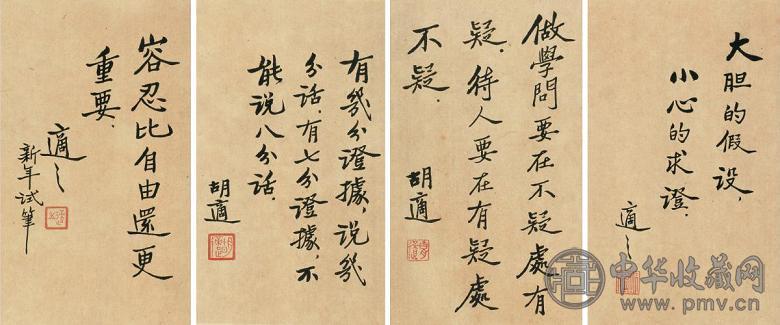 大胆的假设，
小心的求證．
適之
做學問要在不疑處有
疑．待人要在有疑處
不疑．
胡適
有幾分證據，说幾
分话．有七分證據，不
能说八分话．
胡適
容忍比自由還更
重要．
適之
新年試筆
中华收藏网
www.pmv.cn